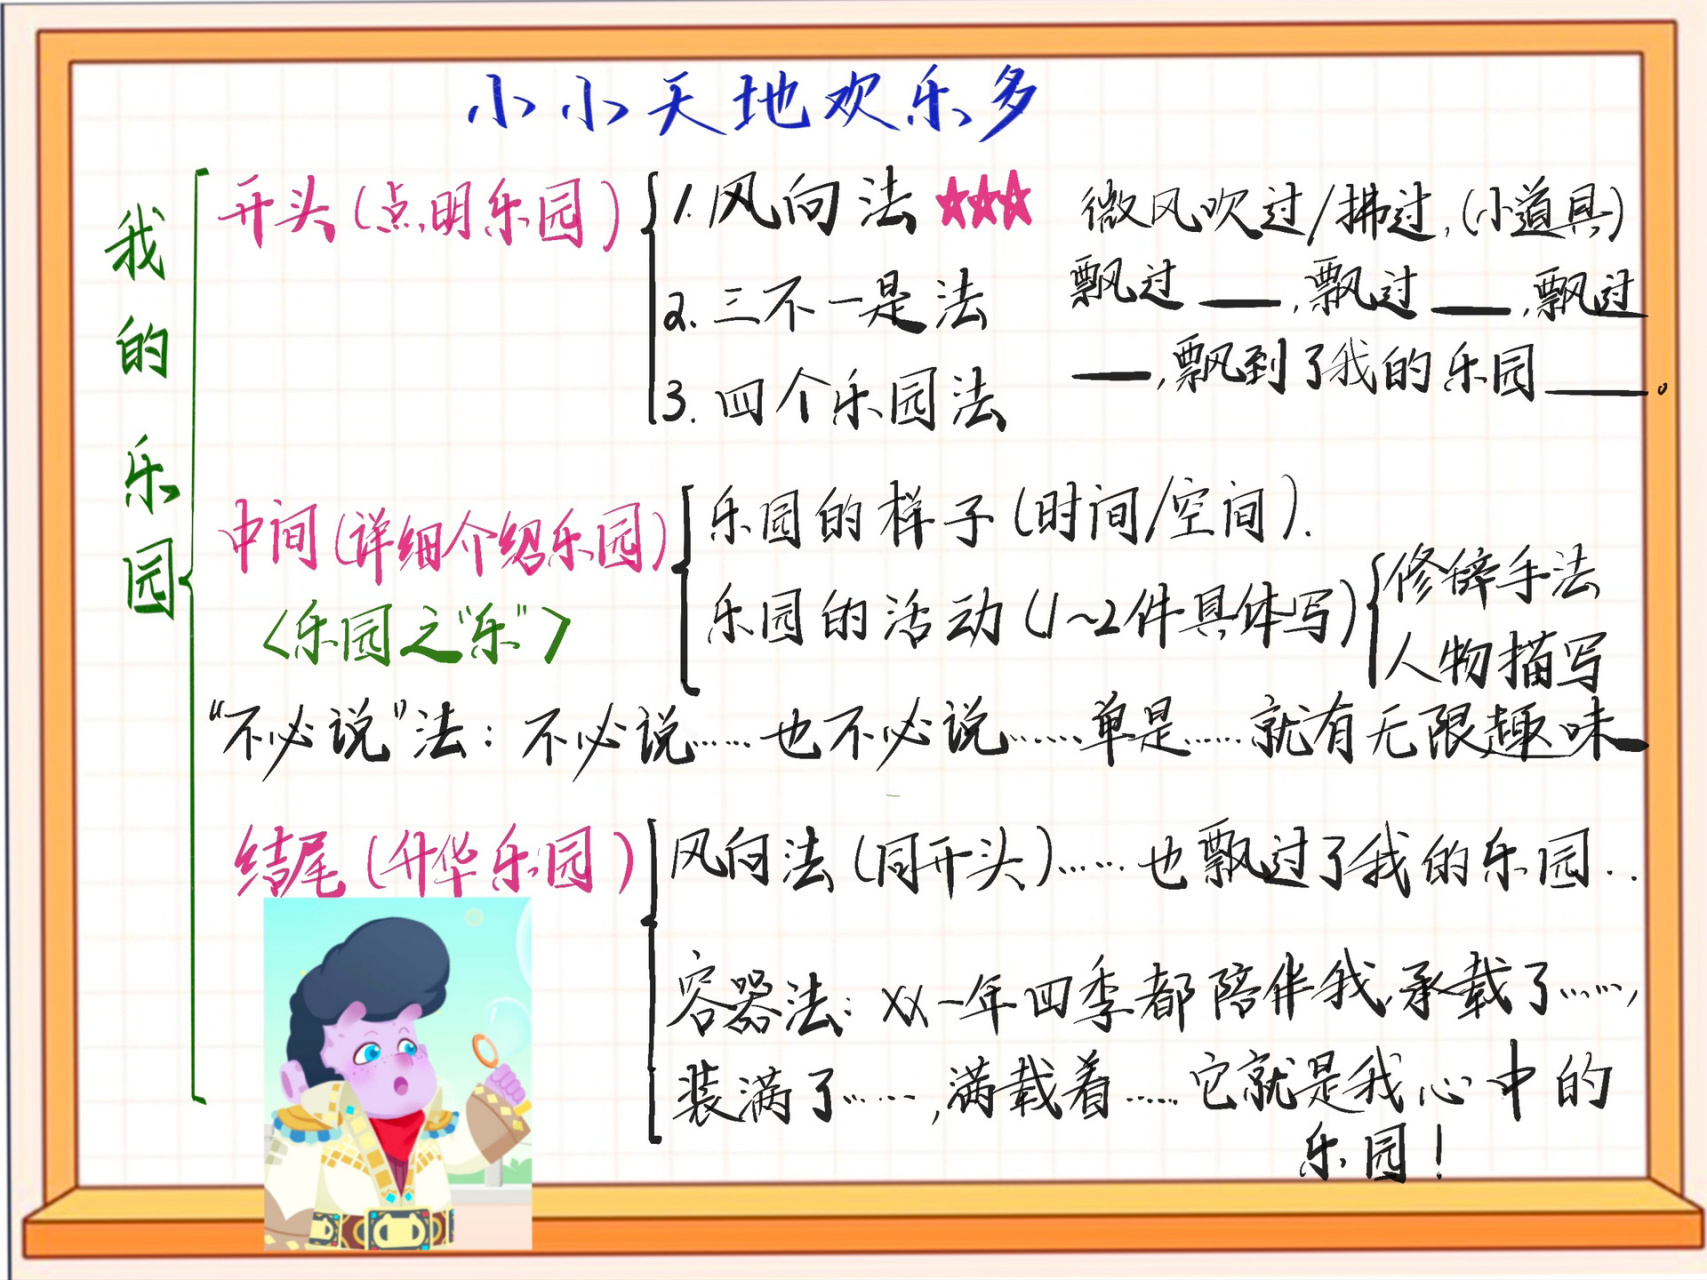 小小天地欢乐多
我的乐园
开头(点明乐园)
1.风向法 ★★★
2.三不一是法
3.四个乐园法
微风吹过/拂过,(小道具)
飘过___,飘过___,飘过
___,飘到了我的乐园____。
中间(详细介绍乐园)
<乐园之"乐">
乐园的样子(时间/空间).
乐园的活动(1~2件具体写)
修辞手法
人物描写
"不必说"法:不必说……也不必说……单是……就有无限趣味
结尾(升华乐园)
风向法(同开头)……也飘过了我的乐园..
容器法:XX一年四季都陪伴我,承载了……,
装满了……,满载着……它就是我心中的
乐园!